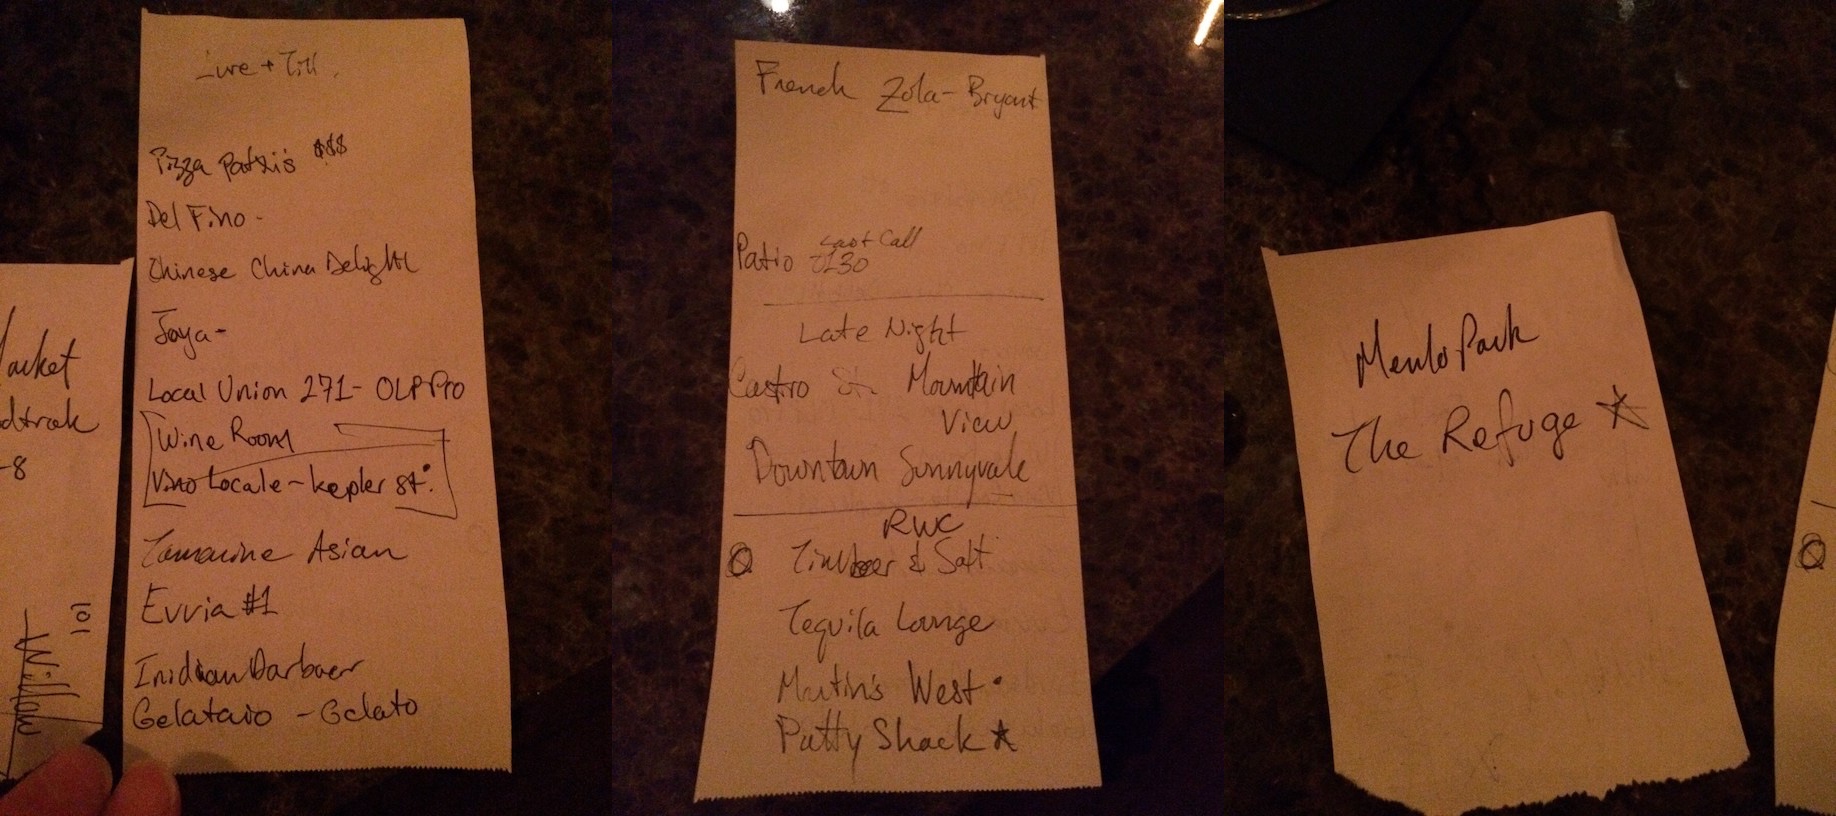 + Till
Pizza Patxi's $$$
Del Fino -
Chinese China Delight
Joya -
Local Union 271 - OLP Pro
Wine Room
Vino Locale - Kepler St.
Tamarine Asian
Evvia #1
Inidian Darbaer
Gelataio - Gelato
-8
101
Willow
French Zola - Bryant
Last Call
Patio
Late Night
Castro St. Mountain
View
Downtown Sunnyvale
RWC
Timber & Salt
Tequila Lounge
Martin's West
Patty Shack
Menlo Park
The Refuge